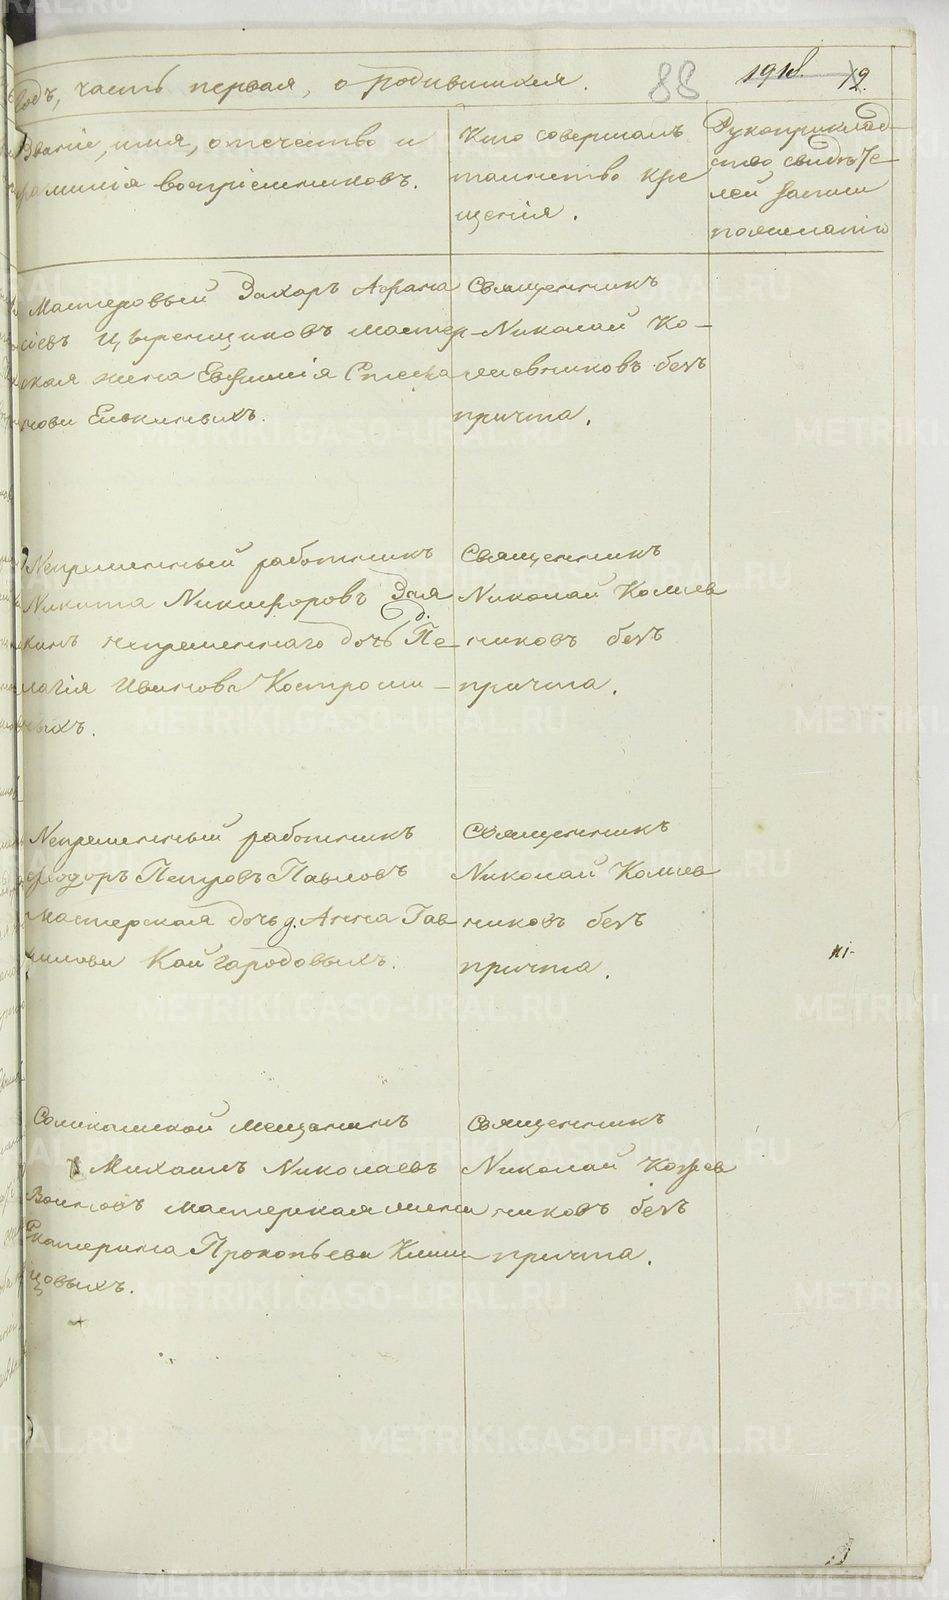 годъ, часть первая, о родившихся.
88
191
Званіе, имя, отечество и
фамилія воспріемниковъ.
Кто совершалъ
таинство кре
щенія.
Рукоприклад
ство свидѣте
лей записи
по желанію
Мастеровый Захаръ Афана
сіевъ Цыренщиковъ мастер
ская жена Евфимія Стефа
нова Елькиныхъ.
Священникъ
Николай Ко-
ковниковъ безъ
причта.
Непременный работникъ
Никита Никифоровъ
кинъ непременнаго дочь д. Пе
лагія Иванова Костроми-
ныхъ.
Священникъ
Николай
никовъ безъ
причта.
Непременный работникъ
Ѳеодоръ Петровъ Павловъ
мастерская дочь д. Анна Гав
рилова Кайгородовыхъ.
Священникъ
Николай
никовъ безъ
причта.
Соликамской мещанинъ
Михаилъ Николаевъ
Воиновъ мастерская жена
Екатерина Прокопьева Клим
цовыхъ.
Священникъ
Николай
никовъ безъ
причта.
METRIKI.GASO-URAL.RU